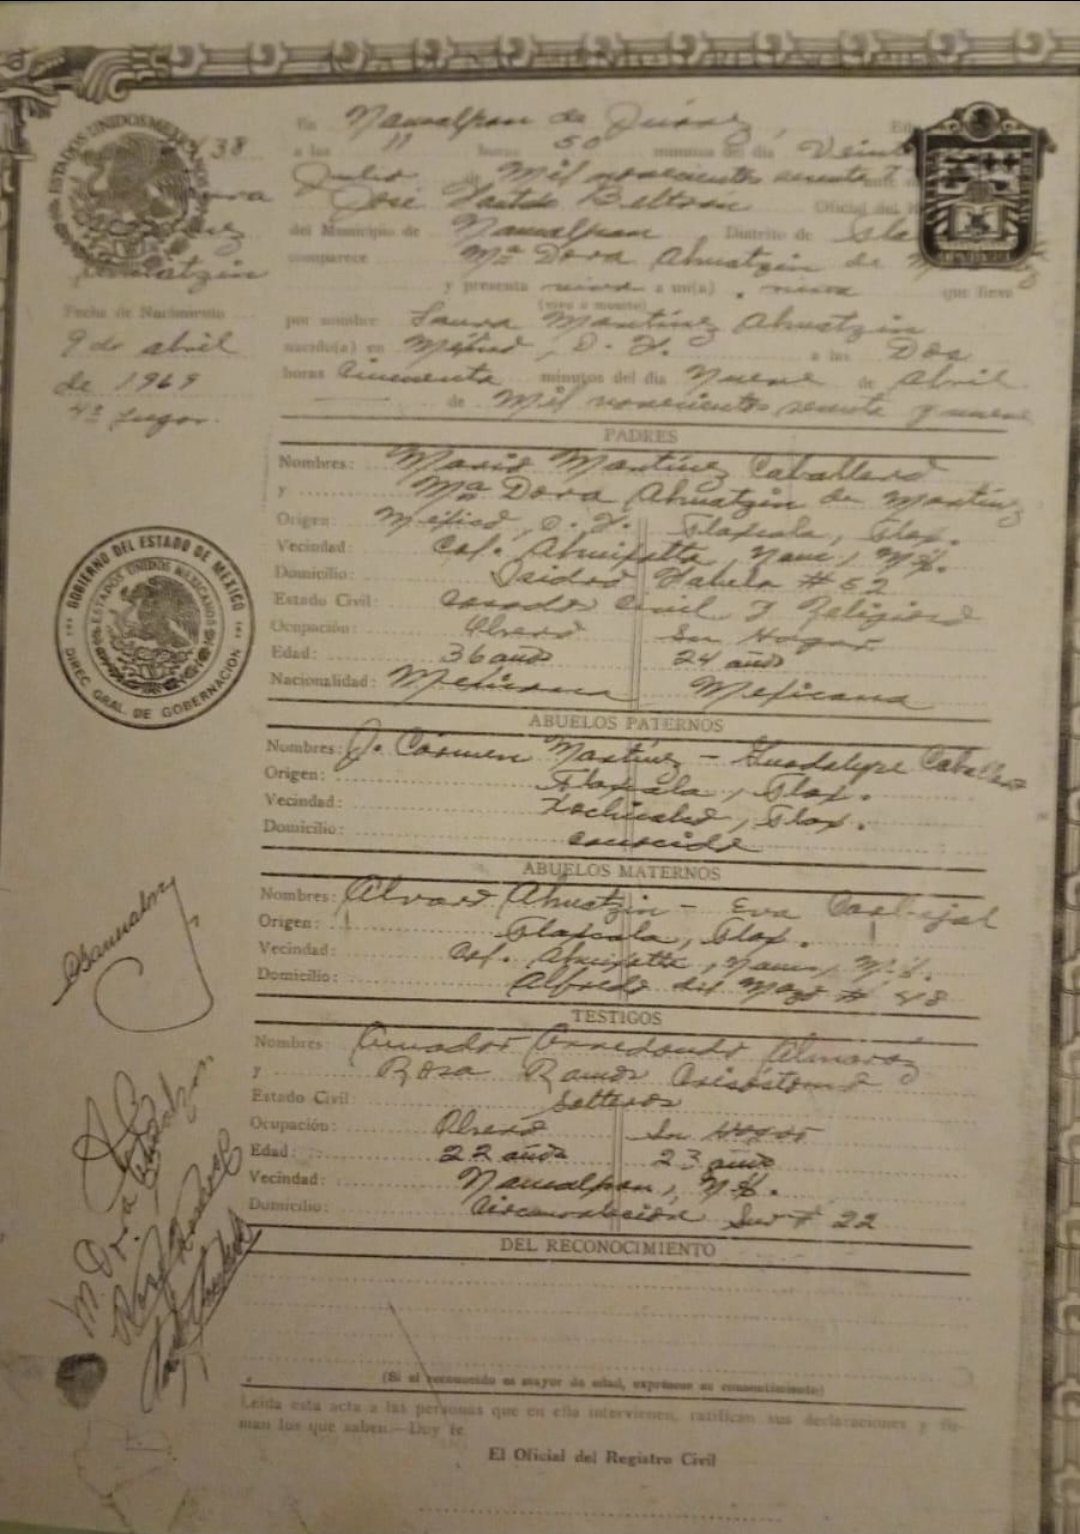 ESTADOS UNIDOS MEXICANOS
En Naucalpan de Juárez,
138
a las 11 horas 50 minutos del día Veint
Julio de Mil novecientos sesenta
José Beltran Oficial del
del Municipio de Naucalpan Distrito de
comparece Mª Dora Ahuatzin de
y presenta viva a un(a) niña que lleva
(vivo o muerto)
por nombre Laura Martínez Ahuatzin
nacido(a) en México, D. F. a las Dos
horas Cincuenta minutos del día Nueve de Abril
de Mil novecientos sesenta y nueve
Ahuatzin
Fecha de Nacimiento
9 de abril
de 1969
4º Lugar.
PADRES
Nombres: Mario Martínez Caballero
y Mª Dora Ahuatzin de Martínez
Origen: México, D. F. Tlaxcala, Tlax.
Vecindad: Col. Ahuizotla, Nauc, Méx.
Domicilio: Isidro Fabela # 52
Estado Civil: Casados Civil y Religioso
Ocupación: Obrero Su Hogar
Edad: 36 años 24 años
Nacionalidad: Mexicana Mexicana
GOBIERNO DEL ESTADO DE MEXICO
ESTADOS UNIDOS MEXICANOS
DIREC. GRAL. DE GOBERNACION
ABUELOS PATERNOS
Nombres: J. Carmen Martínez - Guadalupe Caballero
Origen: Tlaxcala, Tlax.
Vecindad: Tlax.
Domicilio: conocido
ABUELOS MATERNOS
Nombres: Alvaro Ahuatzin - Eva Carbajal
Origen: Tlaxcala, Tlax.
Vecindad: Col. Ahuizotla, Nauc, Méx.
Domicilio: Alfredo del Mazo # 48
TESTIGOS
Nombres Amador Arredondo Almaráz
y Rosa Ramos Crisóstomo
Estado Civil: Solteros
Ocupación: Obrero Su Hogar
Edad: 22 años 23 años
Vecindad: Naucalpan, Méx.
Domicilio: Circunvalación Sur # 22
DEL RECONOCIMIENTO
(Si el reconocido es mayor de edad, exprésese su consentimiento)
Leída esta acta a las personas que en ella intervienen, ratifican sus declaraciones y fir-
man los que saben.—Doy fe.
El Oficial del Registro Civil